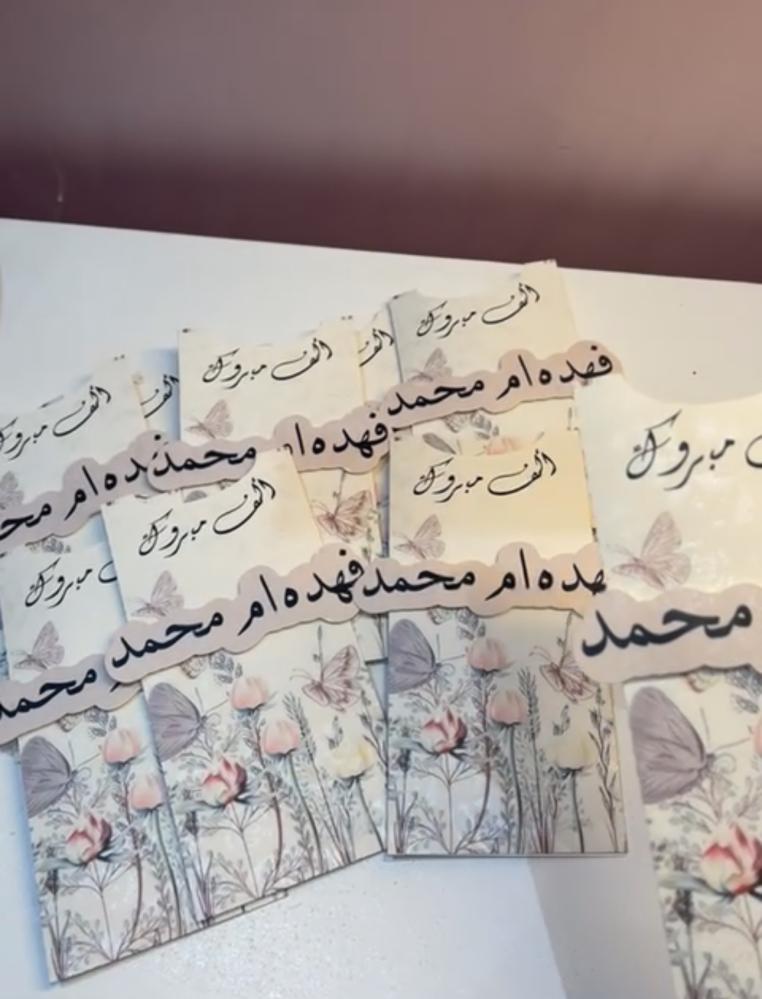 الف مبروك
فهده ام محمد
الف مبروك
فهده ام محمد
الف مبروك
ده ام محمد
الف
الف
الف مبروك
فهده ام محمد
الف مبروك
هده ام محمد
مبروك
محمد
مبروك
محمد